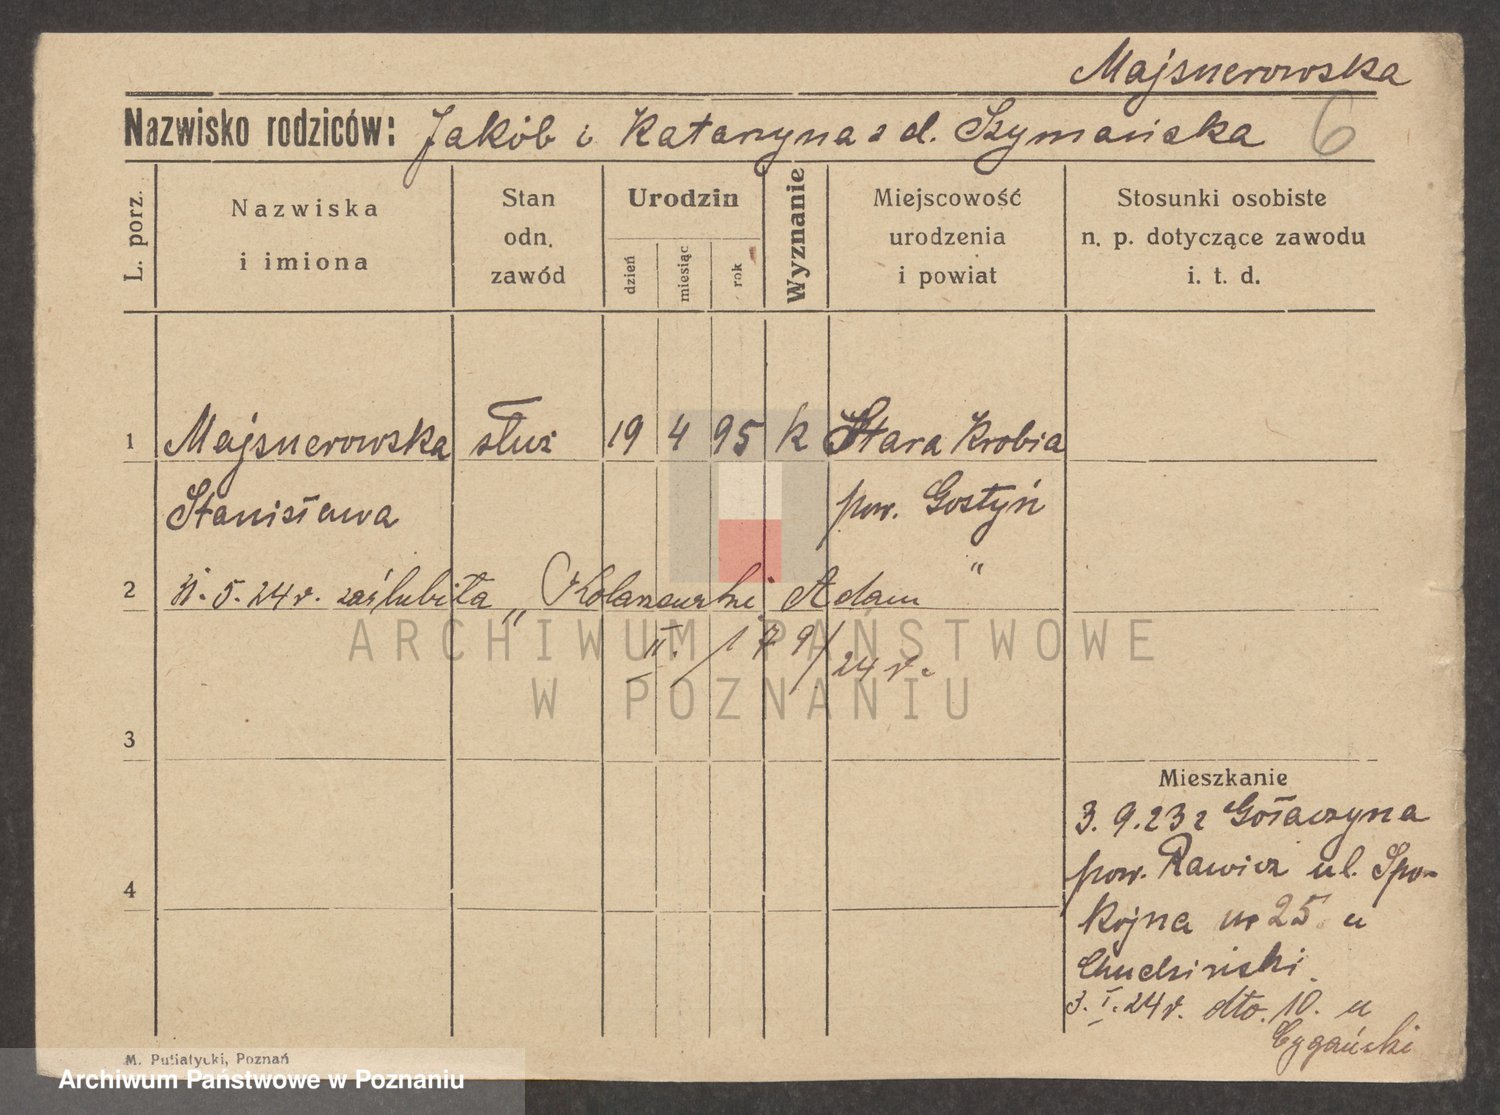 Majsnerowska
Nazwisko rodziców: Jakób i Katarzyna z d. Szymańska 6
L. porz.
Nazwiska
i imiona
Stan
odn.
zawód
Urodzin
dzień
miesiąc
rok
Wyznanie
Miejscowość
urodzenia
i powiat
Stosunki osobiste
n. p. dotyczące zawodu
i. t. d.
1 Majsnerowska służ 19 4 95 k Stara Krobia
Stanisława pow. Gostyń
2 . 5. 24 r. zaślubiła " Adam "
II. / 179 / 24 r.
ARCHIWUM PAŃSTWOWE
W POZNANIU
3
Mieszkanie
3. 9. 23 z Gołaszyna
pow. Rawicz ul. Spo-
4
kojna nr 25 u
Chudziński.
3. I. 24 r. dto. 10. u
Cygański
M. Putiatycki, Poznań
Archiwum Państwowe w Poznaniu